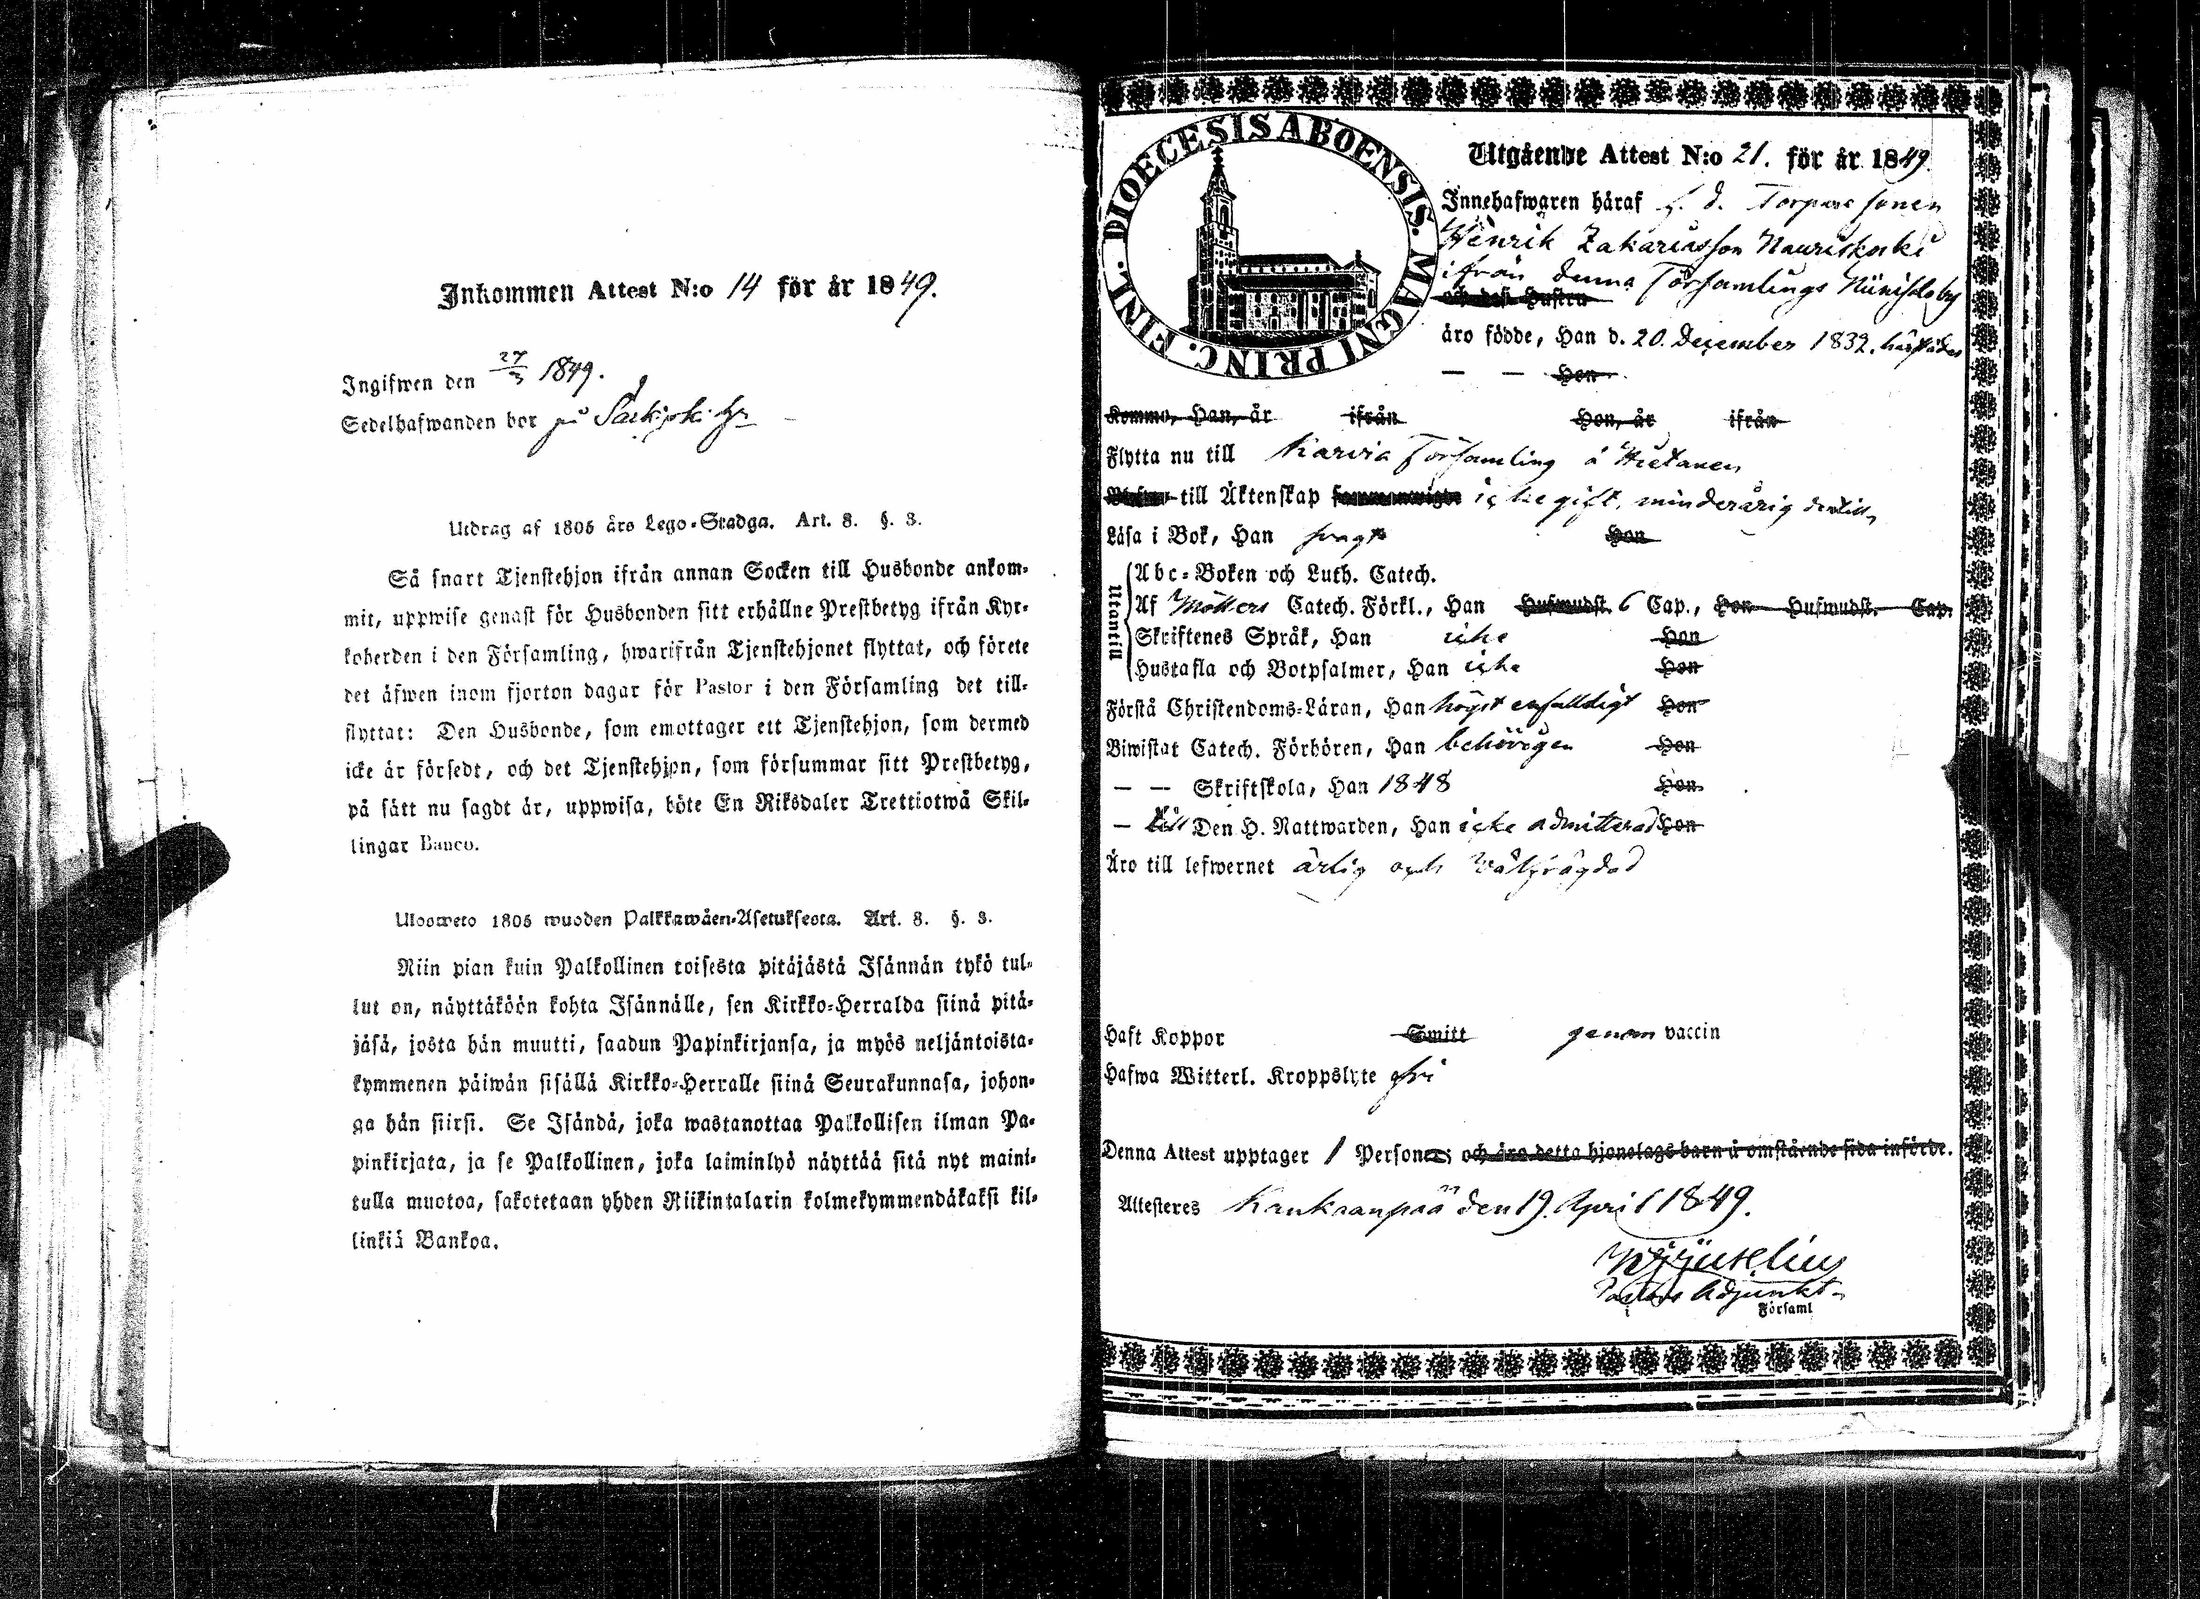 Inkommen Attest N:o 14 för år 1849.
Ingifwen den 27/3 1849.
Sedelhafwanden bor på
Utdrag af 1805 års Lego-Stadga. Art. 8. §. 3.
Så snart Tjenstehjon ifrån annan Socken till Husbonde ankom-
mit, uppwise genast för Husbonden sitt erhållne Prestbetyg ifrån Kyr-
koherden i den Församling, hwarifrån Tjenstehjonet flyttat, och förete
det äfwen inom fjorton dagar för Pastor i den Församling det till-
flyttat: Den Husbonde, som emottager ett Tjenstehjon, som dermed
icke är försedt, och det Tjenstehjon, som försummar sitt Prestbetyg,
på sätt nu sagdt är, uppwisa, böte En Riksdaler Trettiotwå Skil-
lingar Banco.
Ulosweto 1805 wuoden Palkkawäen-Asetuksesta. Art. 8. §. 3.
Niin pian kuin Palkollinen toisesta pitäjästä Isännän tykö tul-
lut on, näyttäköön kohta Isännälle, sen Kirkko-Herralda siinä pitä-
jäsä, josta hän muutti, saadun Papinkirjansa, ja myös neljäntoista-
kymmenen päiwän sisällä Kirkko-Herralle siinä Seurakunnasa, johon-
ga hän siirsi. Se Isändä, joka wastanottaa Palkollisen ilman Pa-
pinkirjata, ja se Palkollinen, joka laiminlyö näyttää sitä nyt maini-
tulla muotoa, sakotetaan yhden Riikintalarin kolmekymmendäkaksi kil-
linkiä Bankoa.
DIOECESIS ABOENSIS. MAGNI PRINC. FINL.
Utgående Attest N:o 21. för år 1849.
Innehafwaren häraf f. d. Torpare sonen
Henrik Zakariasson Nauriskoski
ifrån denna Församlings Niinisaloby
och dess Hustru
äro födde, Han d. 20. December 1832. härstädes
— — Hon
Kommo, Han, år ifrån Hon, år ifrån
Flytta nu till Karvia Församling å Hietanen
till Äktenskap icke gift, minderårig dertill
Läsa i Bok, Han svagt Hon
Utantill
Abc-Boken och Luth. Catech.
Af Möllers Catech. Förkl., Han Hufwudst. 6 Cap., Hon Hufwudst. Cap.
Skriftenes Språk, Han icke Hon
Hustafla och Botpsalmer, Han icke Hon
Förstå Christendoms-Läran, Han högst enfalldigt Hon
Biwistat Catech. Förhören, Han behörigen Hon
— — Skriftskola, Han 1848 Hon
— till Den H. Nattwarden, Han icke admitterad Hon
Äro till lefwernet ärlig och välfrägdad
Haft Koppor Smitt genom vaccin
Hafwa Witterl. Kroppslyte fri
Denna Attest upptager 1 Personer; och äro detta hjonelags barn å omstående sida införde.
Attesteres Kankaanpää den 19. April 1849.
Pastors Adjunkt
i Församl